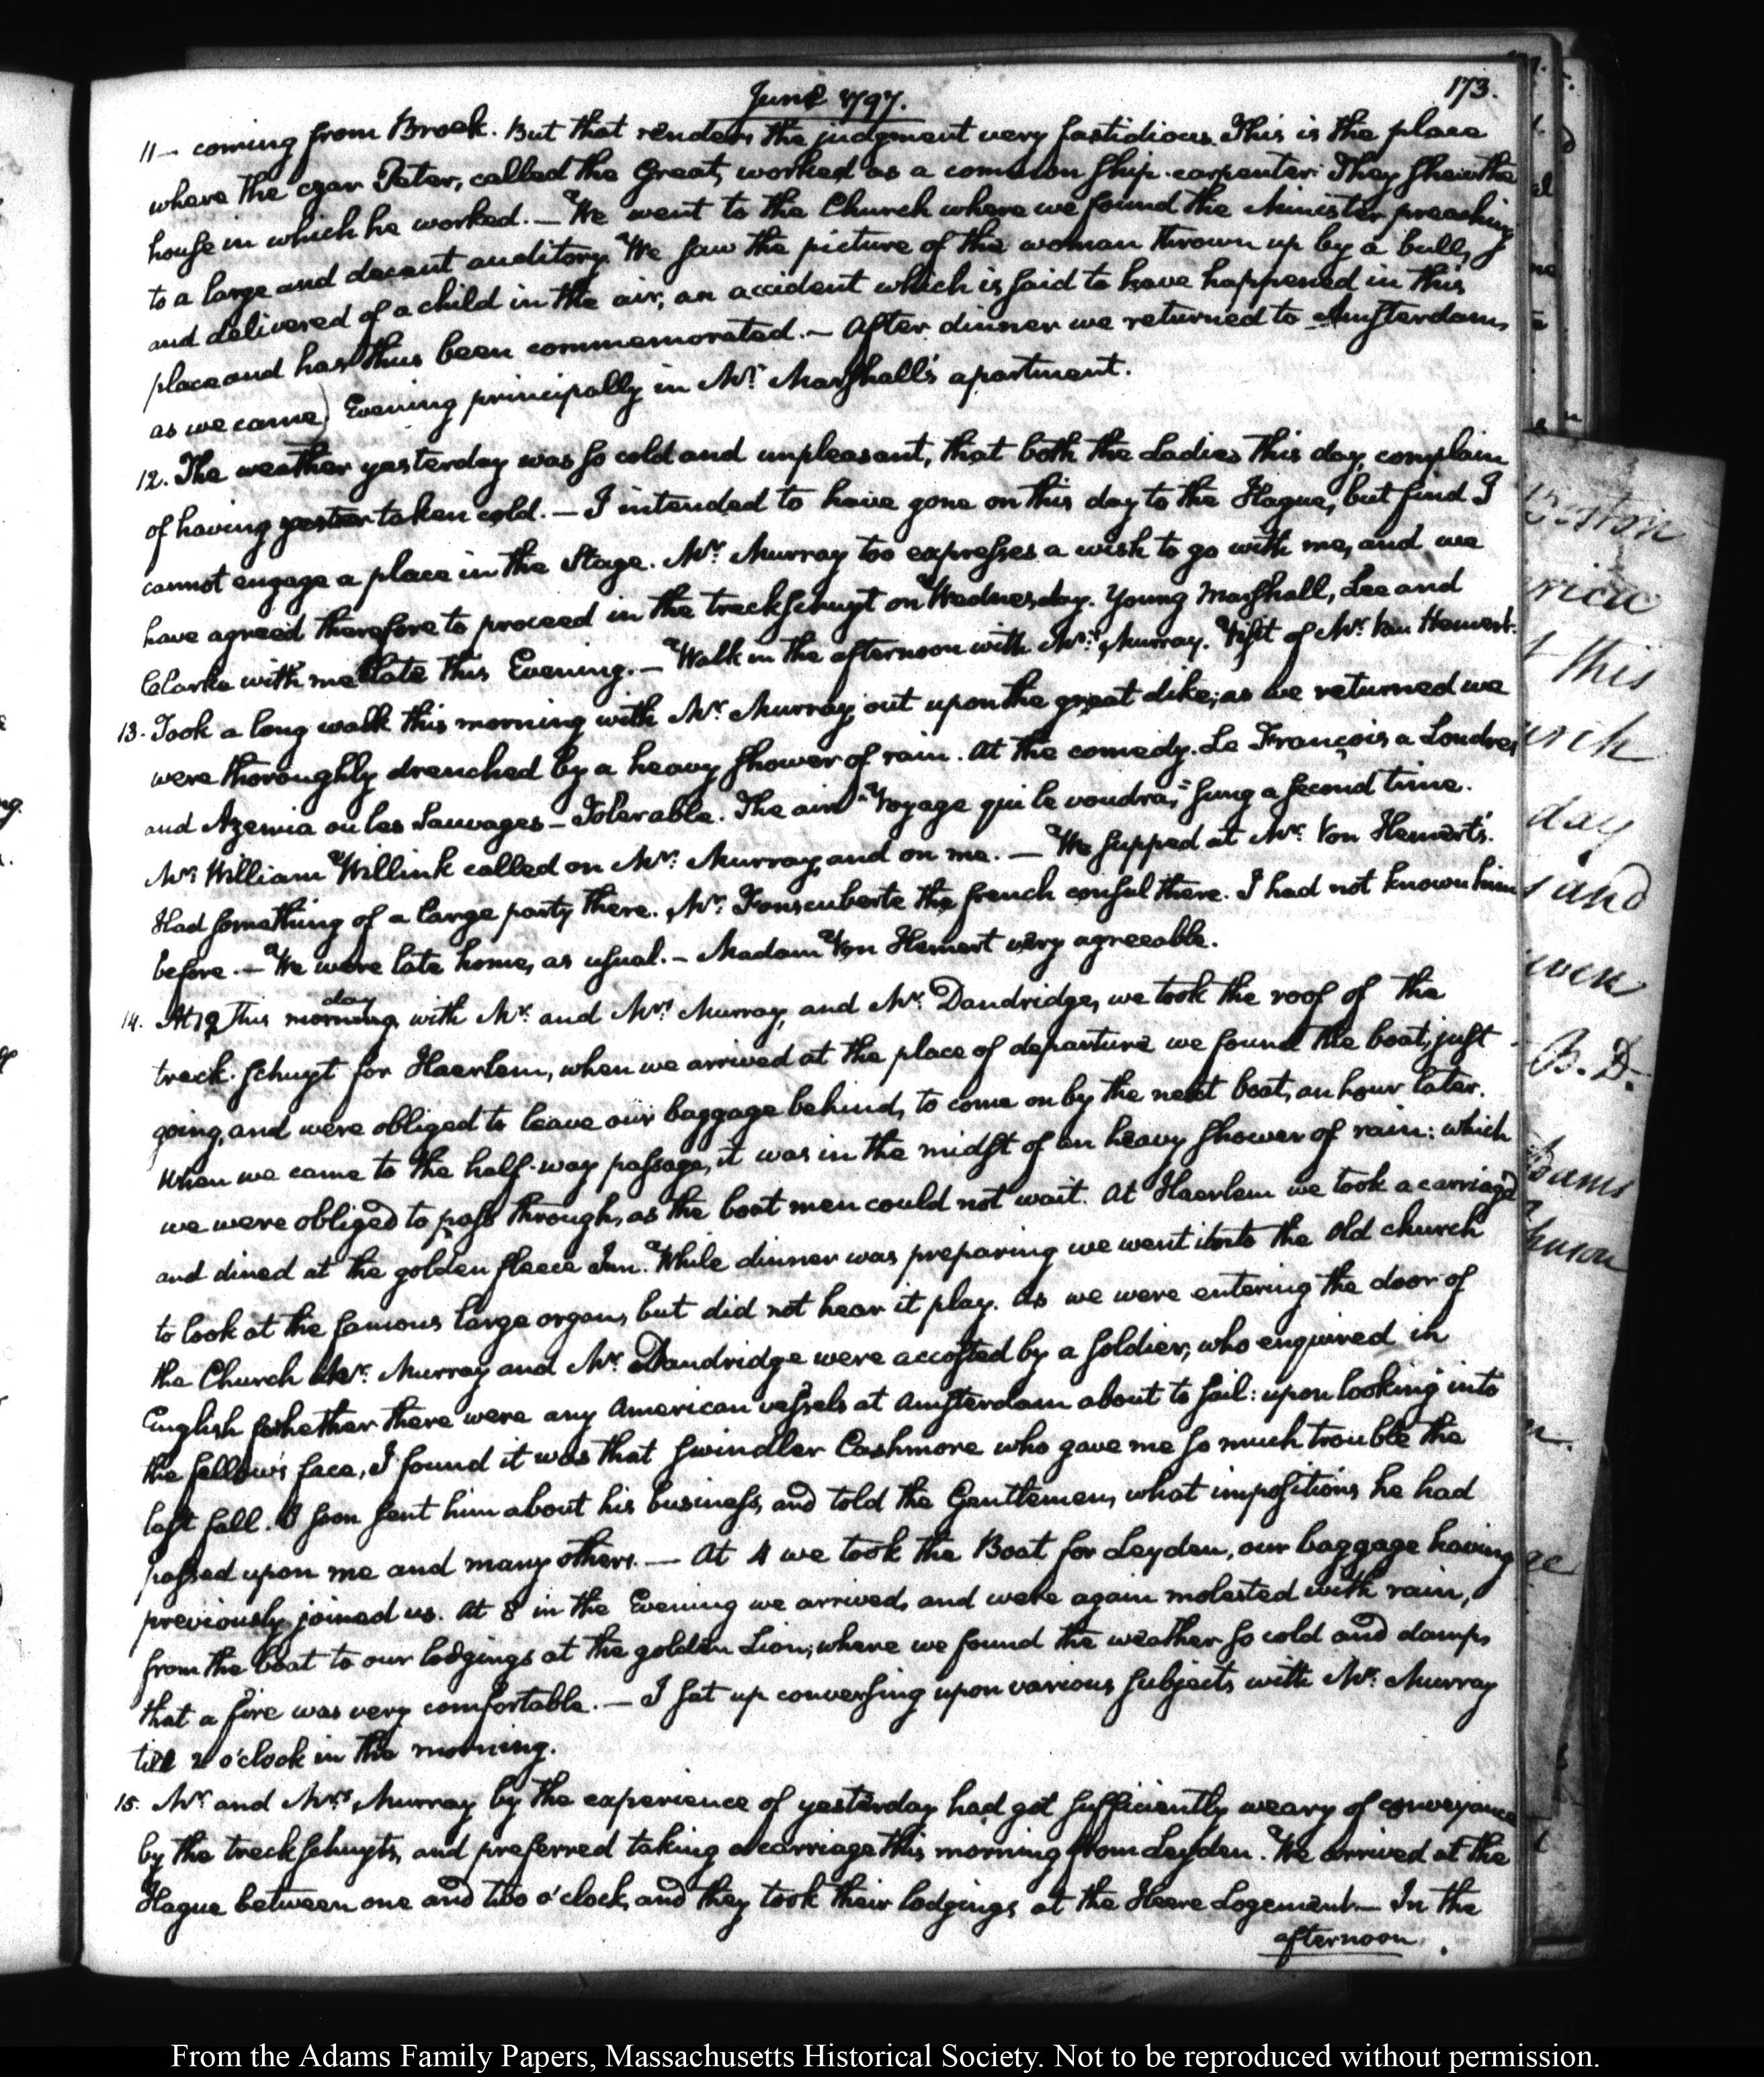 June 1797.
173.
11— coming from Broek. But that renders the judgment very fastidious. This is the place
where the czar Peter, called the Great, worked as a common ship-carpenter. They shew the
house in which he worked.— We went to the Church where we found the Minister preaching
to a large and decent auditory. We saw the picture of the woman thrown up by a bull,
and delivered of a child in the air, an accident which is said to have happened in this
place and has thus been commemorated.— After dinner we returned to Amsterdam,
as we came) Evening principally in Mr. Marshall's apartment.
12. The weather yesterday was so cold and unpleasant, that both the Ladies this day, complain
of having taken cold.— I intended to have gone on this day to the Hague, but find I
cannot engage a place in the Stage. Mr. Murray too expresses a wish to go with me, and we
have agreed therefore to proceed in the treckschuyt on Wednesday. Young Marshall, Lee and
Clarke with me late this Evening.— Walk in the afternoon with Mrs. Murray. Visit of Mr. Van Hemert.
13. Took a long walk this morning with Mr. Murray, out upon the great dike; as we returned we
were thoroughly drenched by a heavy shower of rain. At the comedy. Le François a Londres
and Azemia ou les Sauvages— Tolerable. The air "Voyage qui le voudra," sung a second time.
Mr. William Willink called on Mr. Murray, and on me.— We supped at Mr. Van Hemert's.
Had something of a large party there. Mr. the french consul there. I had not known him
before.— We were late home, as usual.— Madam Van Hemert very agreeable.
14. At 12 this day morning with Mr. and Mrs. Murray, and Mr. Dandridge, we took the roof of the
treck-schuyt for Haerlem, when we arrived at the place of departure we found the boat, just
going, and were obliged to leave our baggage behind, to come on by the next boat, an hour later.
When we came to the half-way passage, it was in the midst of an heavy shower of rain: which
we were obliged to pass through, as the boat men could not wait. At Haerlem we took a carriage
and dined at the golden fleece Inn. While dinner was preparing we went into the old church
to look at the famous large organ, but did not hear it play. As we were entering the door of
the Church Mr. Murray and Mr. Dandridge were accosted by a soldier, who enquired in
English whether there were any American vessels at Amsterdam about to sail: upon looking into
the fellow's face, I found it was that swindler Cashmore who gave me so much trouble the
last fall. I soon sent him about his business, and told the Gentlemen, what impositions he had
passed upon me and many others.— At 4 we took the Boat for Leyden, our baggage having
previously joined us. At 8 in the Evening we arrived, and were again molested with rain,
from the boat to our lodgings at the golden Lion; where we found the weather so cold and damp,
that a fire was very comfortable.— I sat up conversing upon various subjects with Mr. Murray
till 2 o'clock in the morning.
15. Mr. and Mrs. Murray by the experience of yesterday had got sufficiently weary of conveyance
by the treckschuyts, and preferred taking a carriage this morning from Leyden. We arrived at the
Hague between one and two o'clock, and they took their lodgings at the Heere Logement.— In the
afternoon
From the Adams Family Papers, Massachusetts Historical Society. Not to be reproduced without permission.